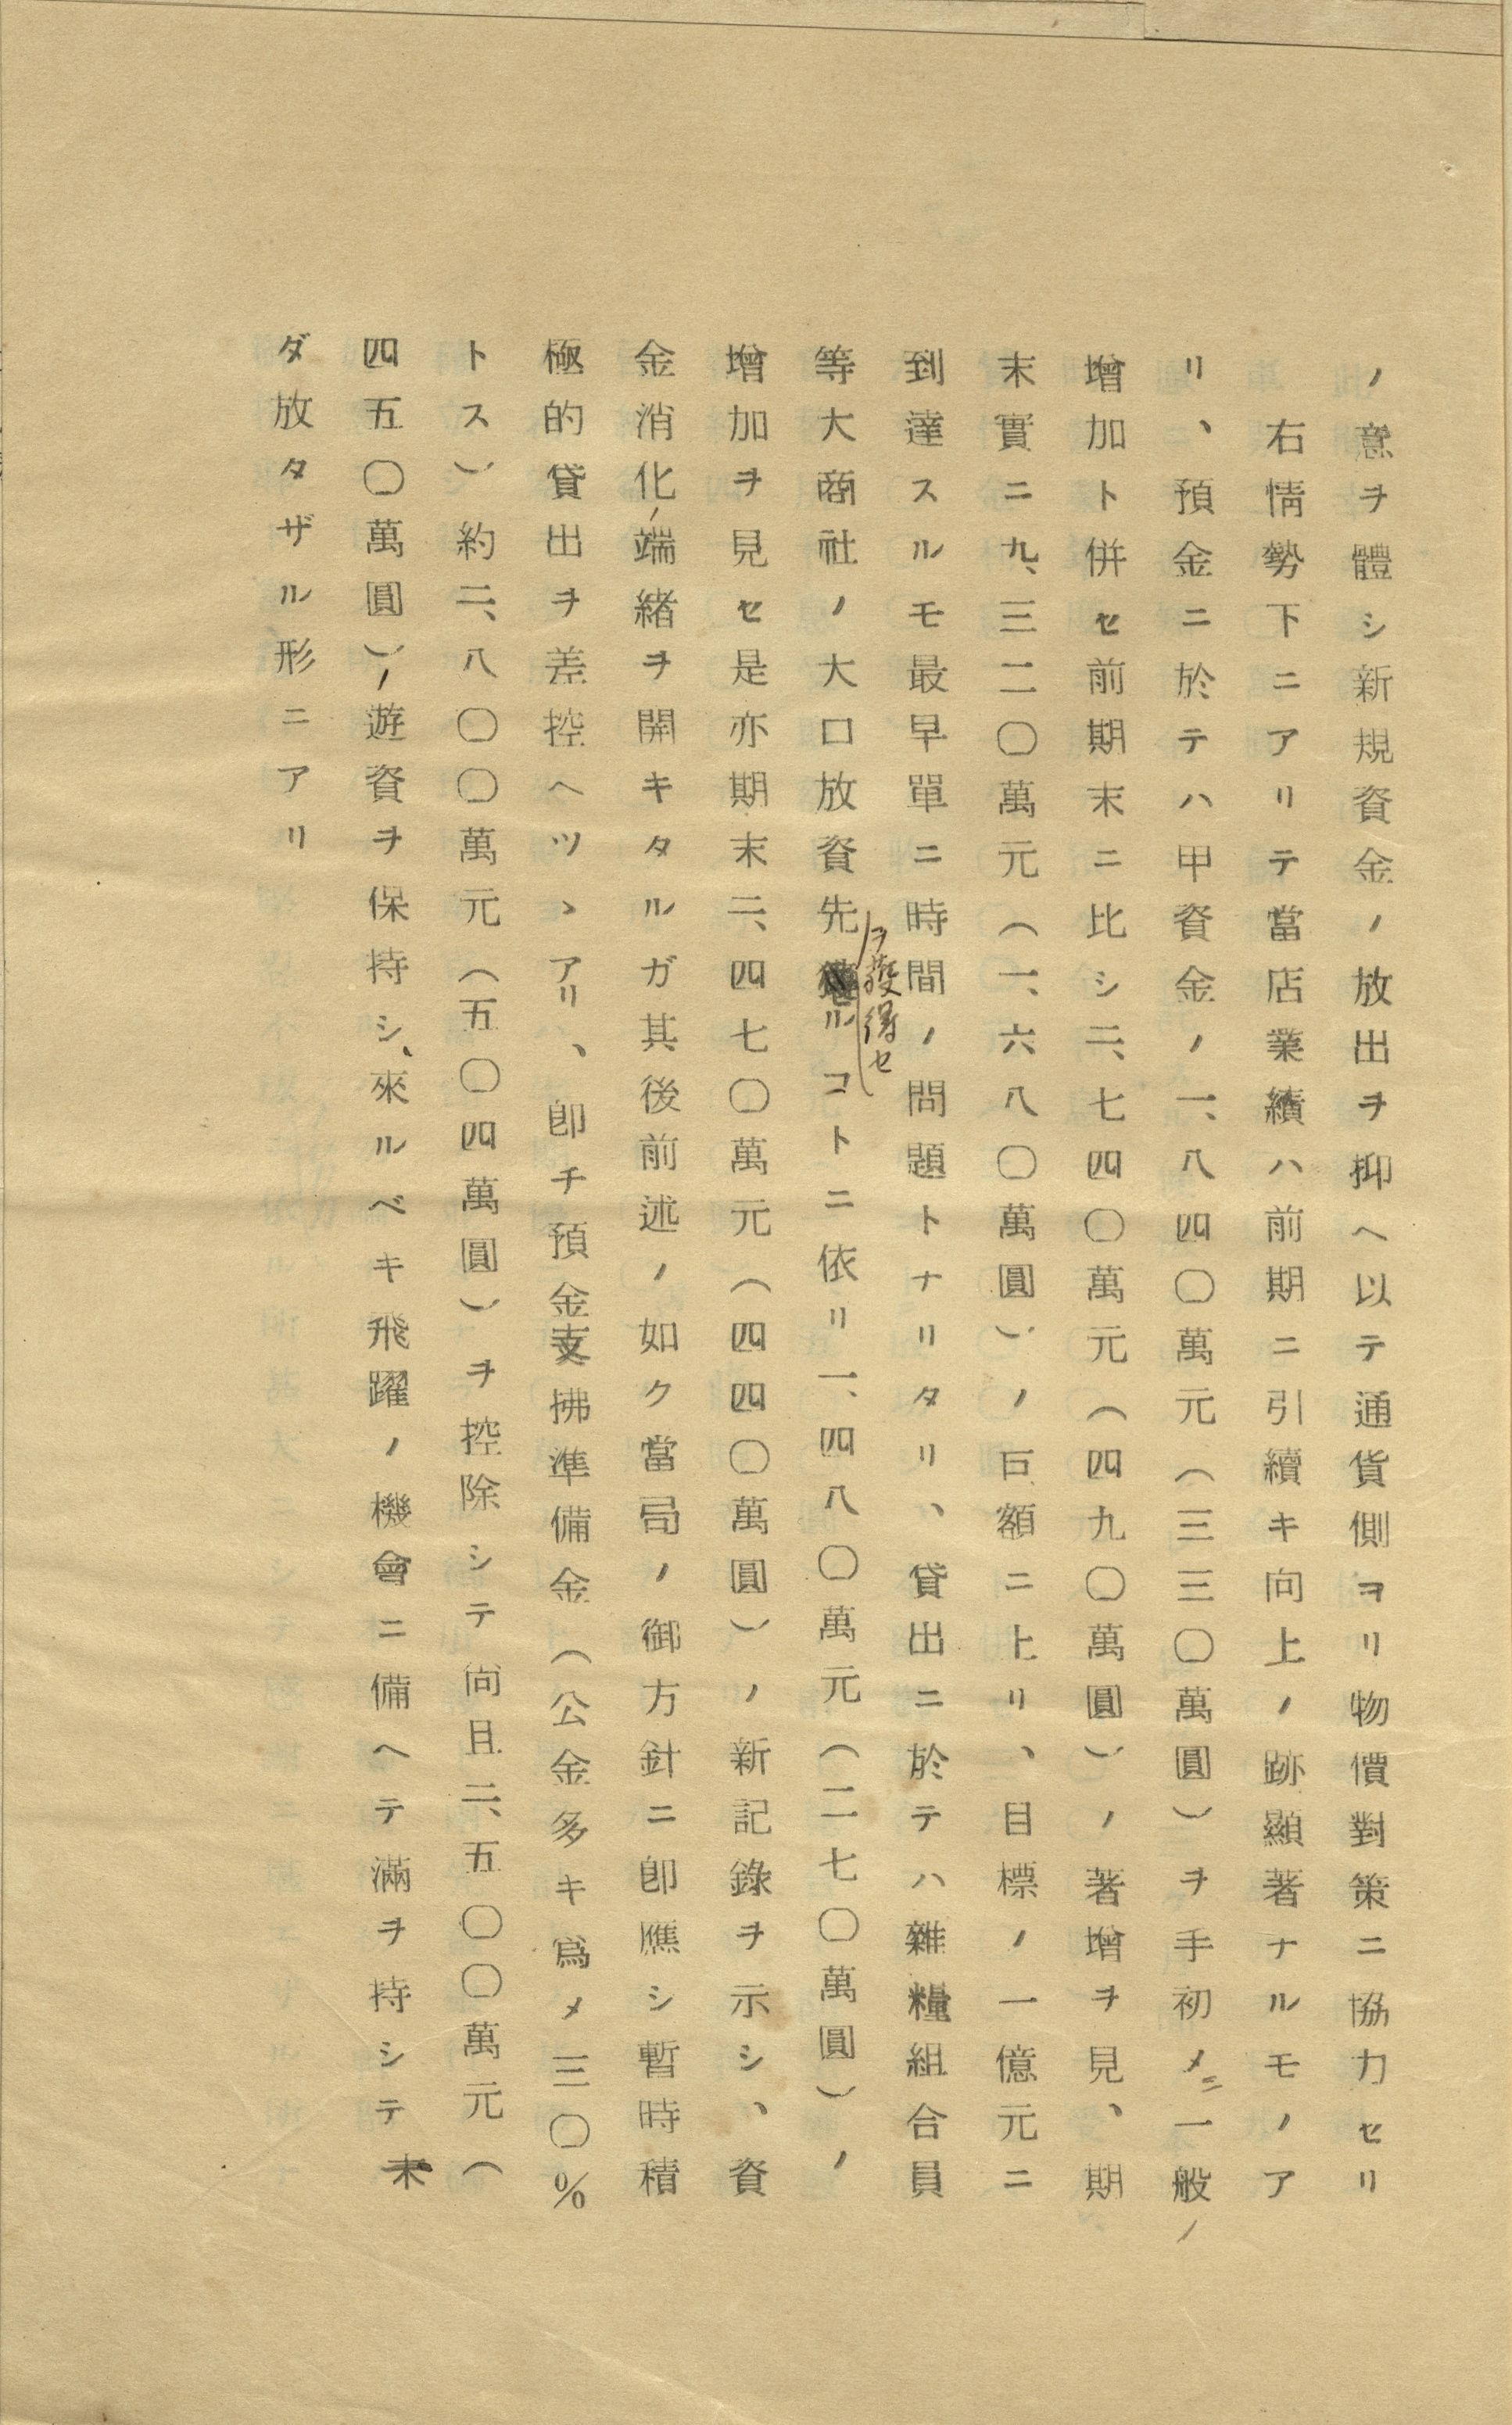 ノ意ヲ體シ新規資金ノ放出ヲ抑ヘ以テ通貨側ヨリ物價對策ニ協力セリ
右情勢下ニアリテ當店業績ハ前期ニ引續キ向上ノ跡顯著ナルモノア
リ、預金ニ於テハ甲資金ノ一、八四〇萬元（三三〇萬圓）ヲ手初メニ一般ノ
增加ト併セ前期末ニ比シ二、七四〇萬元（四九〇萬圓）ノ著增ヲ見、期
末實ニ九、三二〇萬元（一、六八〇萬圓）ノ巨額ニ上リ、目標ノ一億元ニ
到達スルモ最早單ニ時間ノ問題トナリタリ、貸出ニ於テハ雜糧組合員
等大商社ノ大口放資先ヲ獲得セルコトニ依リ一、四八〇萬元（二七〇萬圓）ノ
增加ヲ見セ是亦期末二、四七〇萬元（四四〇萬圓）ノ新記錄ヲ示シ、資
金消化ノ端緒ヲ開キタルガ其後前述ノ如ク當局ノ御方針ニ卽應シ暫時積
極的貸出ヲ差控ヘツヽアリ、卽チ預金支拂準備金（公金多キ爲メ三〇%
トス）約二、八〇〇萬元（五〇四萬圓）ヲ控除シテ尙且二、五〇〇萬元（
四五〇萬圓）ノ遊資ヲ保持シ、來ルベキ飛躍ノ機會ニ備ヘテ滿ヲ持シテ未
ダ放タザル形ニアリ